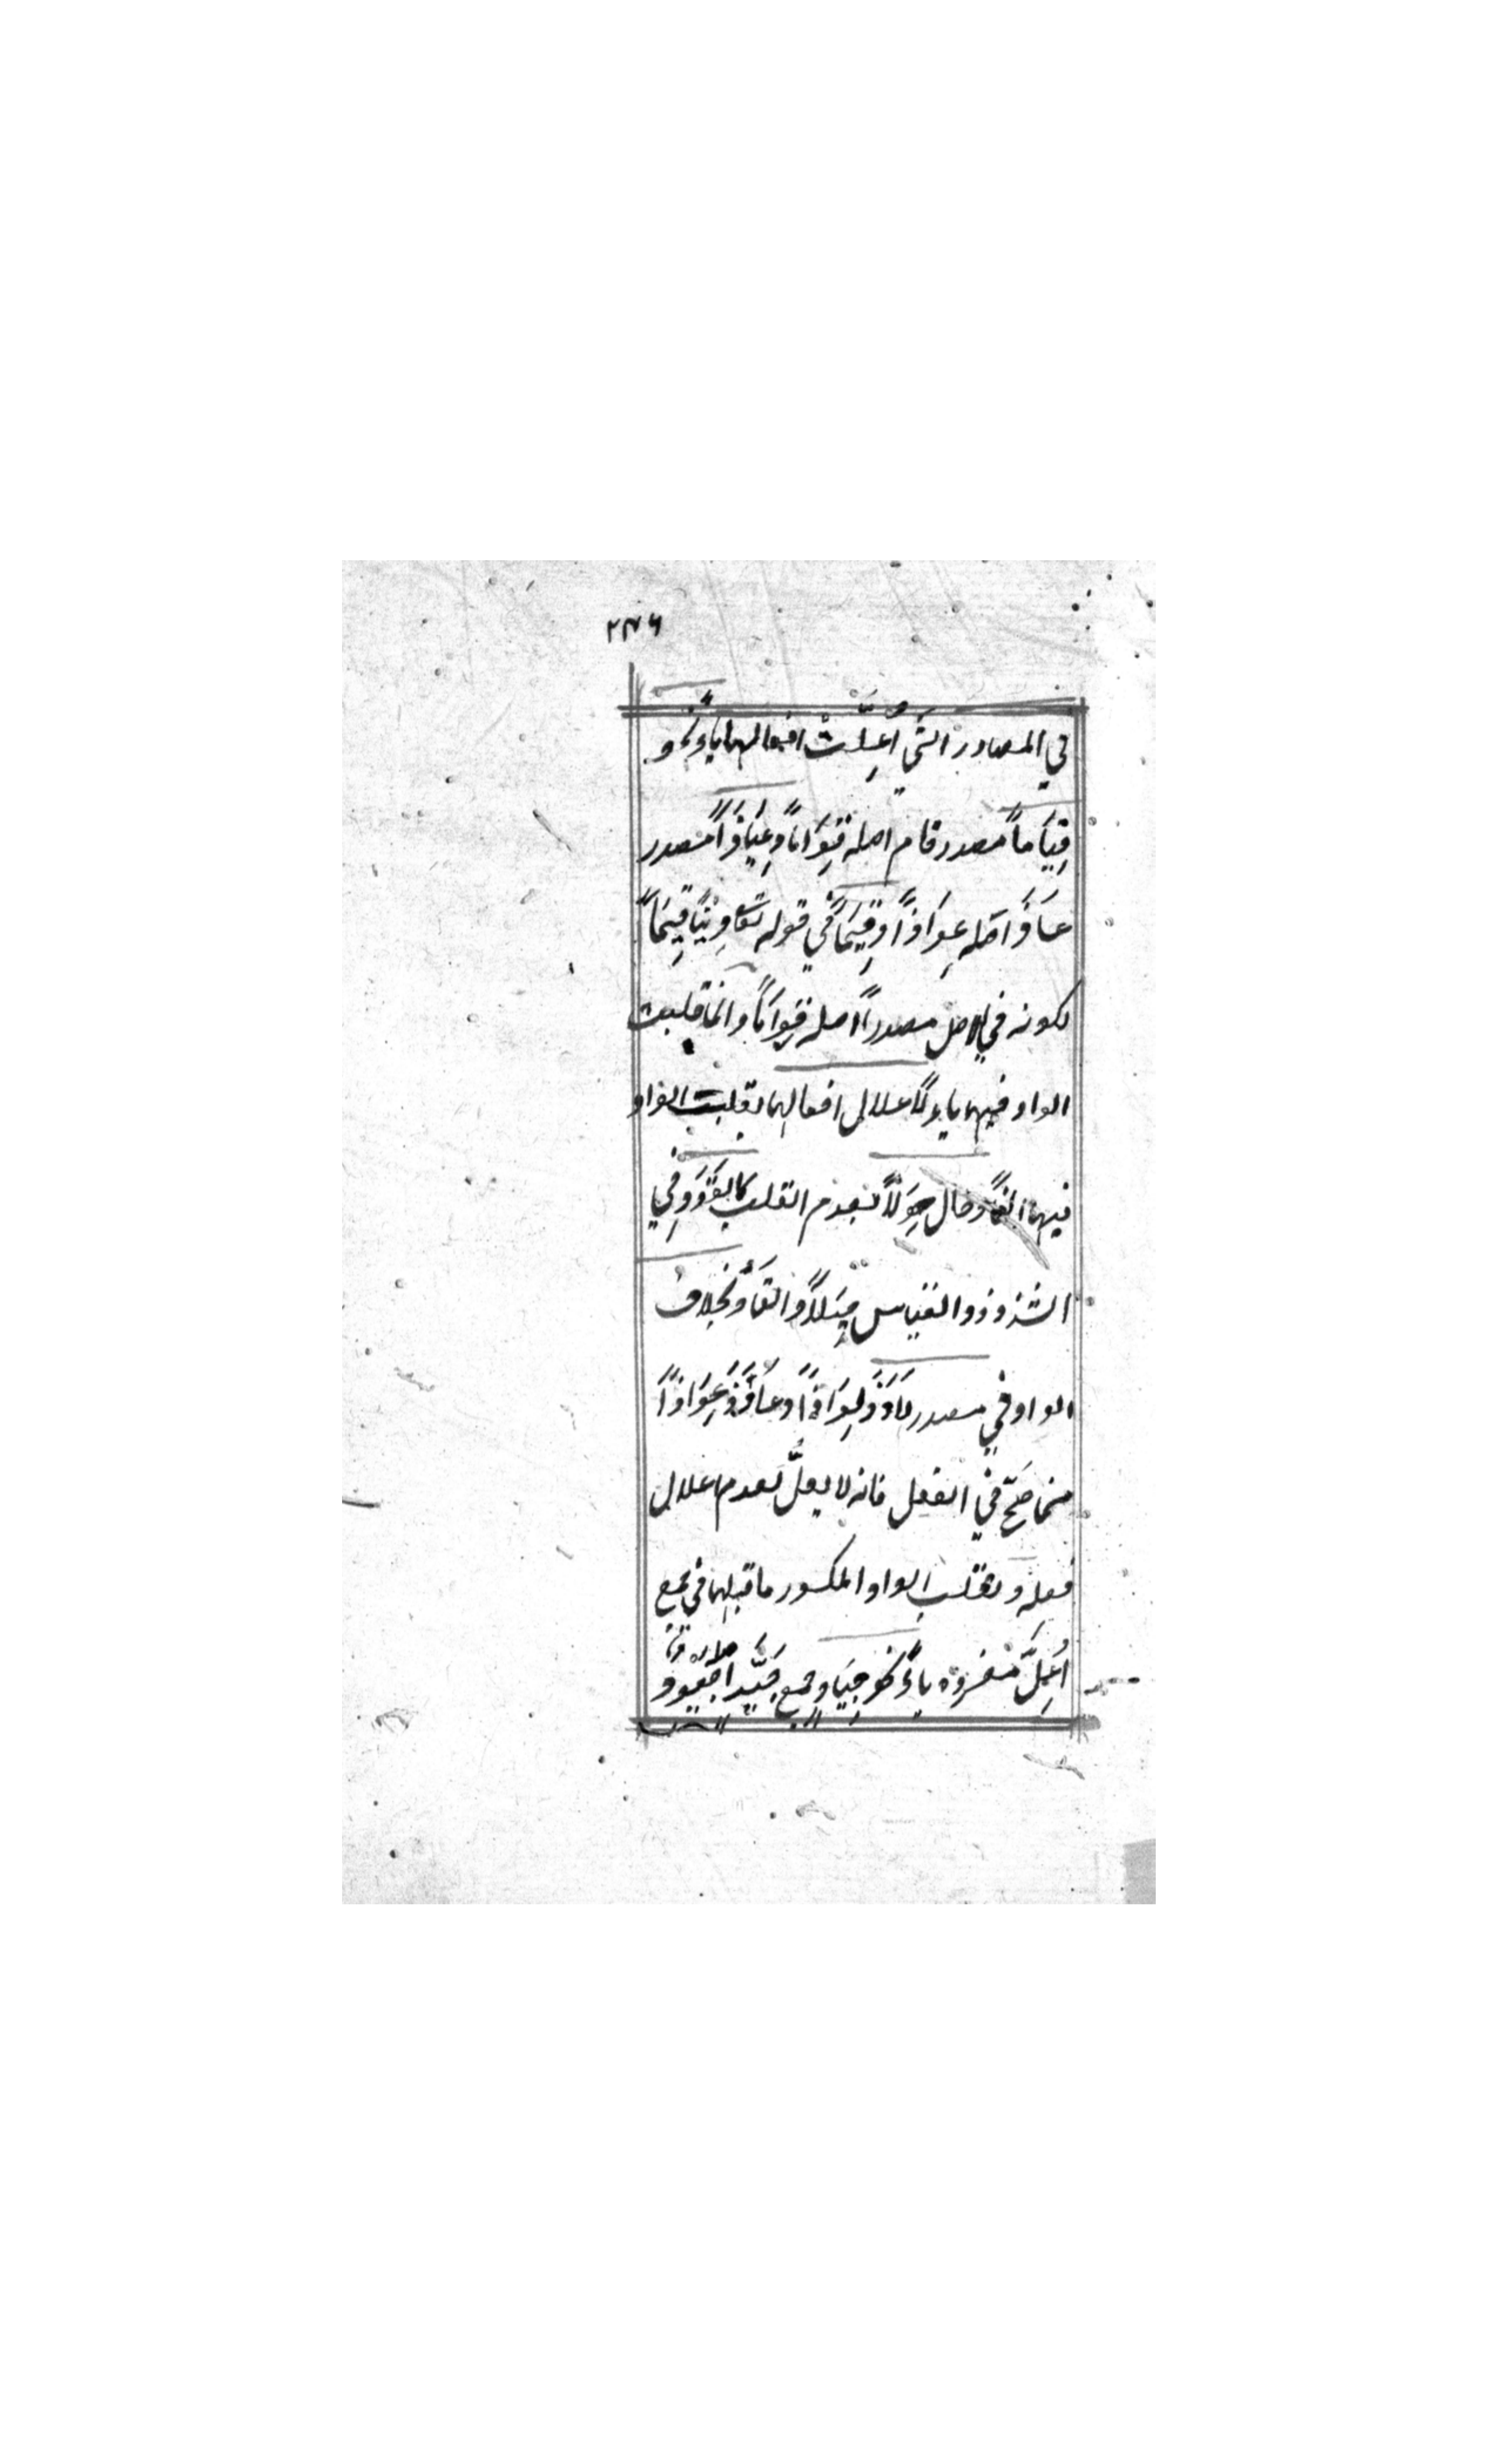 ٢٣٦
في المصادر التي اُعِلَّتْ افعالها ياءً نحو
قِيَاماً مصدر قام اصله قِوَاماً وعِيَاذاً مصدر
عَاذَ اصله عِوَاذاً وقِيَماً في قوله تعَا دِيناً قِيَماً
لكونه في الاصل مصدراً اصله قِوَماً وانما قلبت
الواو فيهما ياءً لاعلال افعالهما بقلب الواو
فيهما الفاً وحال حِوَلاً بعدم القلب كالقَوَدِ في
الشذوذ والقياس حِيَلاً والقَادُ بخلاف
الواو في مصدر لَاوَذَ لِوَاذاً وعَاوَذَ عِوَاذاً
مما صَحّ في الفعل فانه لا يعلُّ لعدم اعلال
فعله وتقلب الواو المكسور ما قبلها في جمع
اُعِلَّ مفرده ياءً نحو جِيَاد جمع جَيِّد اصله